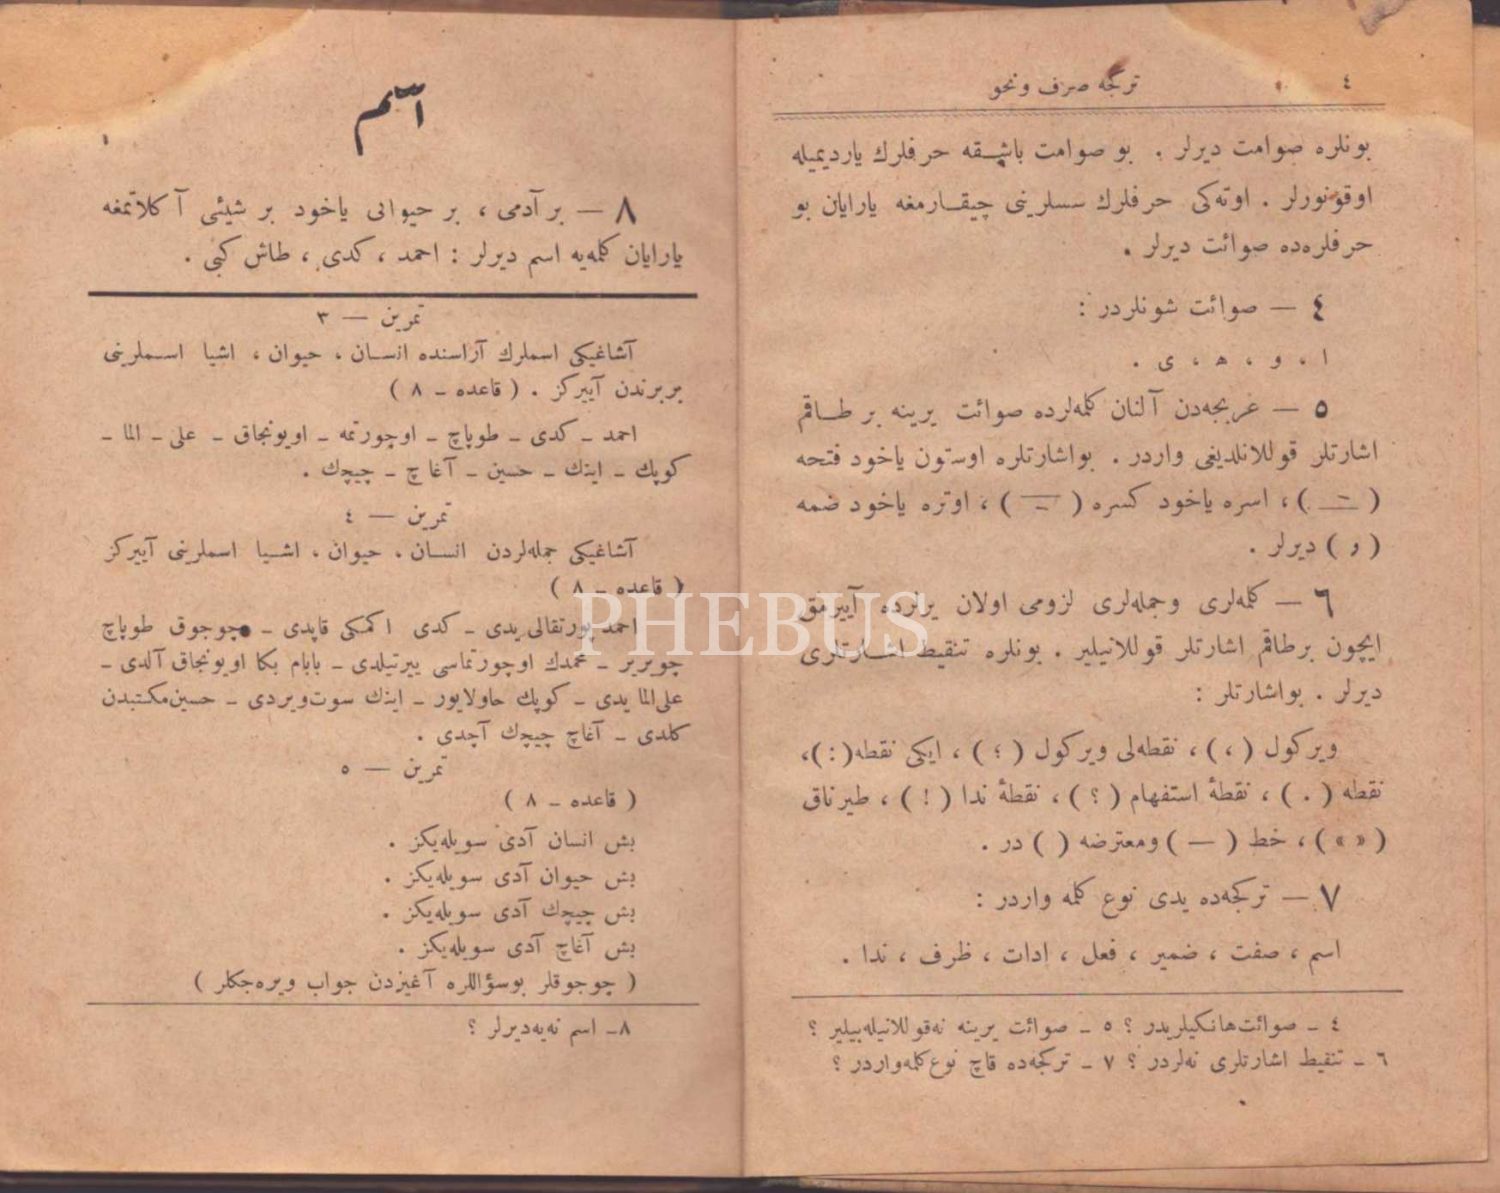 ٤
تركجه صرف ونحو
بونلره صوامت ديرلر . بو صوامت باشقه حرفلرك يارديميله
اوقونورلر . اوتەكى حرفلرك سسلرينى چيقارمغه يارايان بو
حرفلرەده صوائت ديرلر .
٤ — صوائت شونلردر :
ا ، و ، ه ، ى .
٥ — عربجەدن آلنان كلمەلرده صوائت يرينه بر طاقم
اشارتلر قوللانلديغى واردر . بواشارتلره اوستون ياخود فتحه
( َ ) ، اسره ياخود كسره ( ِ ) ، اوتره ياخود ضمه
( ُ ) ديرلر .
٦ — كلمەلرى وجملەلرى لزومى اولان يرلرده آييرمق
ايچون برطاقم اشارتلر قوللانيلير . بونلره تنقيط اشارتلرى
ديرلر . بواشارتلر :
ويركول ( ، ) ، نقطەلى ويركول ( ؛ ) ، ايكى نقطه ( : ) ،
نقطه ( . ) ، نقطۀ استفهام ( ؟ ) ، نقطۀ ندا ( ! ) ، طيرناق
( « » ) ، خط ( — ) ومعترضه ( ) در .
٧ — تركجەده يدى نوع كلمه واردر :
اسم ، صفت ، ضمير ، فعل ، ادات ، ظرف ، ندا .
٤ ـ صوائت هانكيلريدر ؟ ٥ ـ صوائت يرينه نەقوللانيلەبيلير ؟
٦ ـ تنقيط اشارتلرى نەلردر ؟ ٧ ـ تركجەده قاچ نوع كلمەواردر ؟
اسم
٨ — بر آدمى ، بر حيوانى ياخود بر شيئى آكلاتمغه
يارايان كلمەيه اسم ديرلر : احمد ، كدى ، طاش كبى .
تمرين — ٣
آشاغيكى اسملرك آراسنده انسان ، حيوان ، اشيا اسملرينى
بربرندن آييركز . ( قاعده ـ ٨ )
احمد ـ كدى ـ طوپاچ ـ اوچورتمه ـ اويونجاق ـ على ـ الما ـ
كوپك ـ اينك ـ حسين ـ آغاچ ـ چيچك .
تمرين — ٤
آشاغيكى جملەلردن انسان ، حيوان ، اشيا اسملرينى آييركز
( قاعده ـ ٨ )
احمد پورتقالى يدى ـ كدى اكمكى قاپدى ـ چوجوق طوپاچ
چويرير ـ محمدك اوچورتماسى ييرتيلدى ـ بابام بكا اويونجاق آلدى ـ
على الما يدى ـ كوپك حاولايور ـ اينك سوت ويردى ـ حسين مكتبدن
كلدى ـ آغاچ چيچك آچدى .
تمرين — ٥
( قاعده ـ ٨ )
بش انسان آدى سويلەيكز .
بش حيوان آدى سويلەيكز .
بش چيچك آدى سويلەيكز .
بش آغاچ آدى سويلەيكز .
( چوجوقلر بوسؤاللره آغيزدن جواب ويرەجكلر )
٨ـ اسم نەيەديرلر ؟
PHEBUS